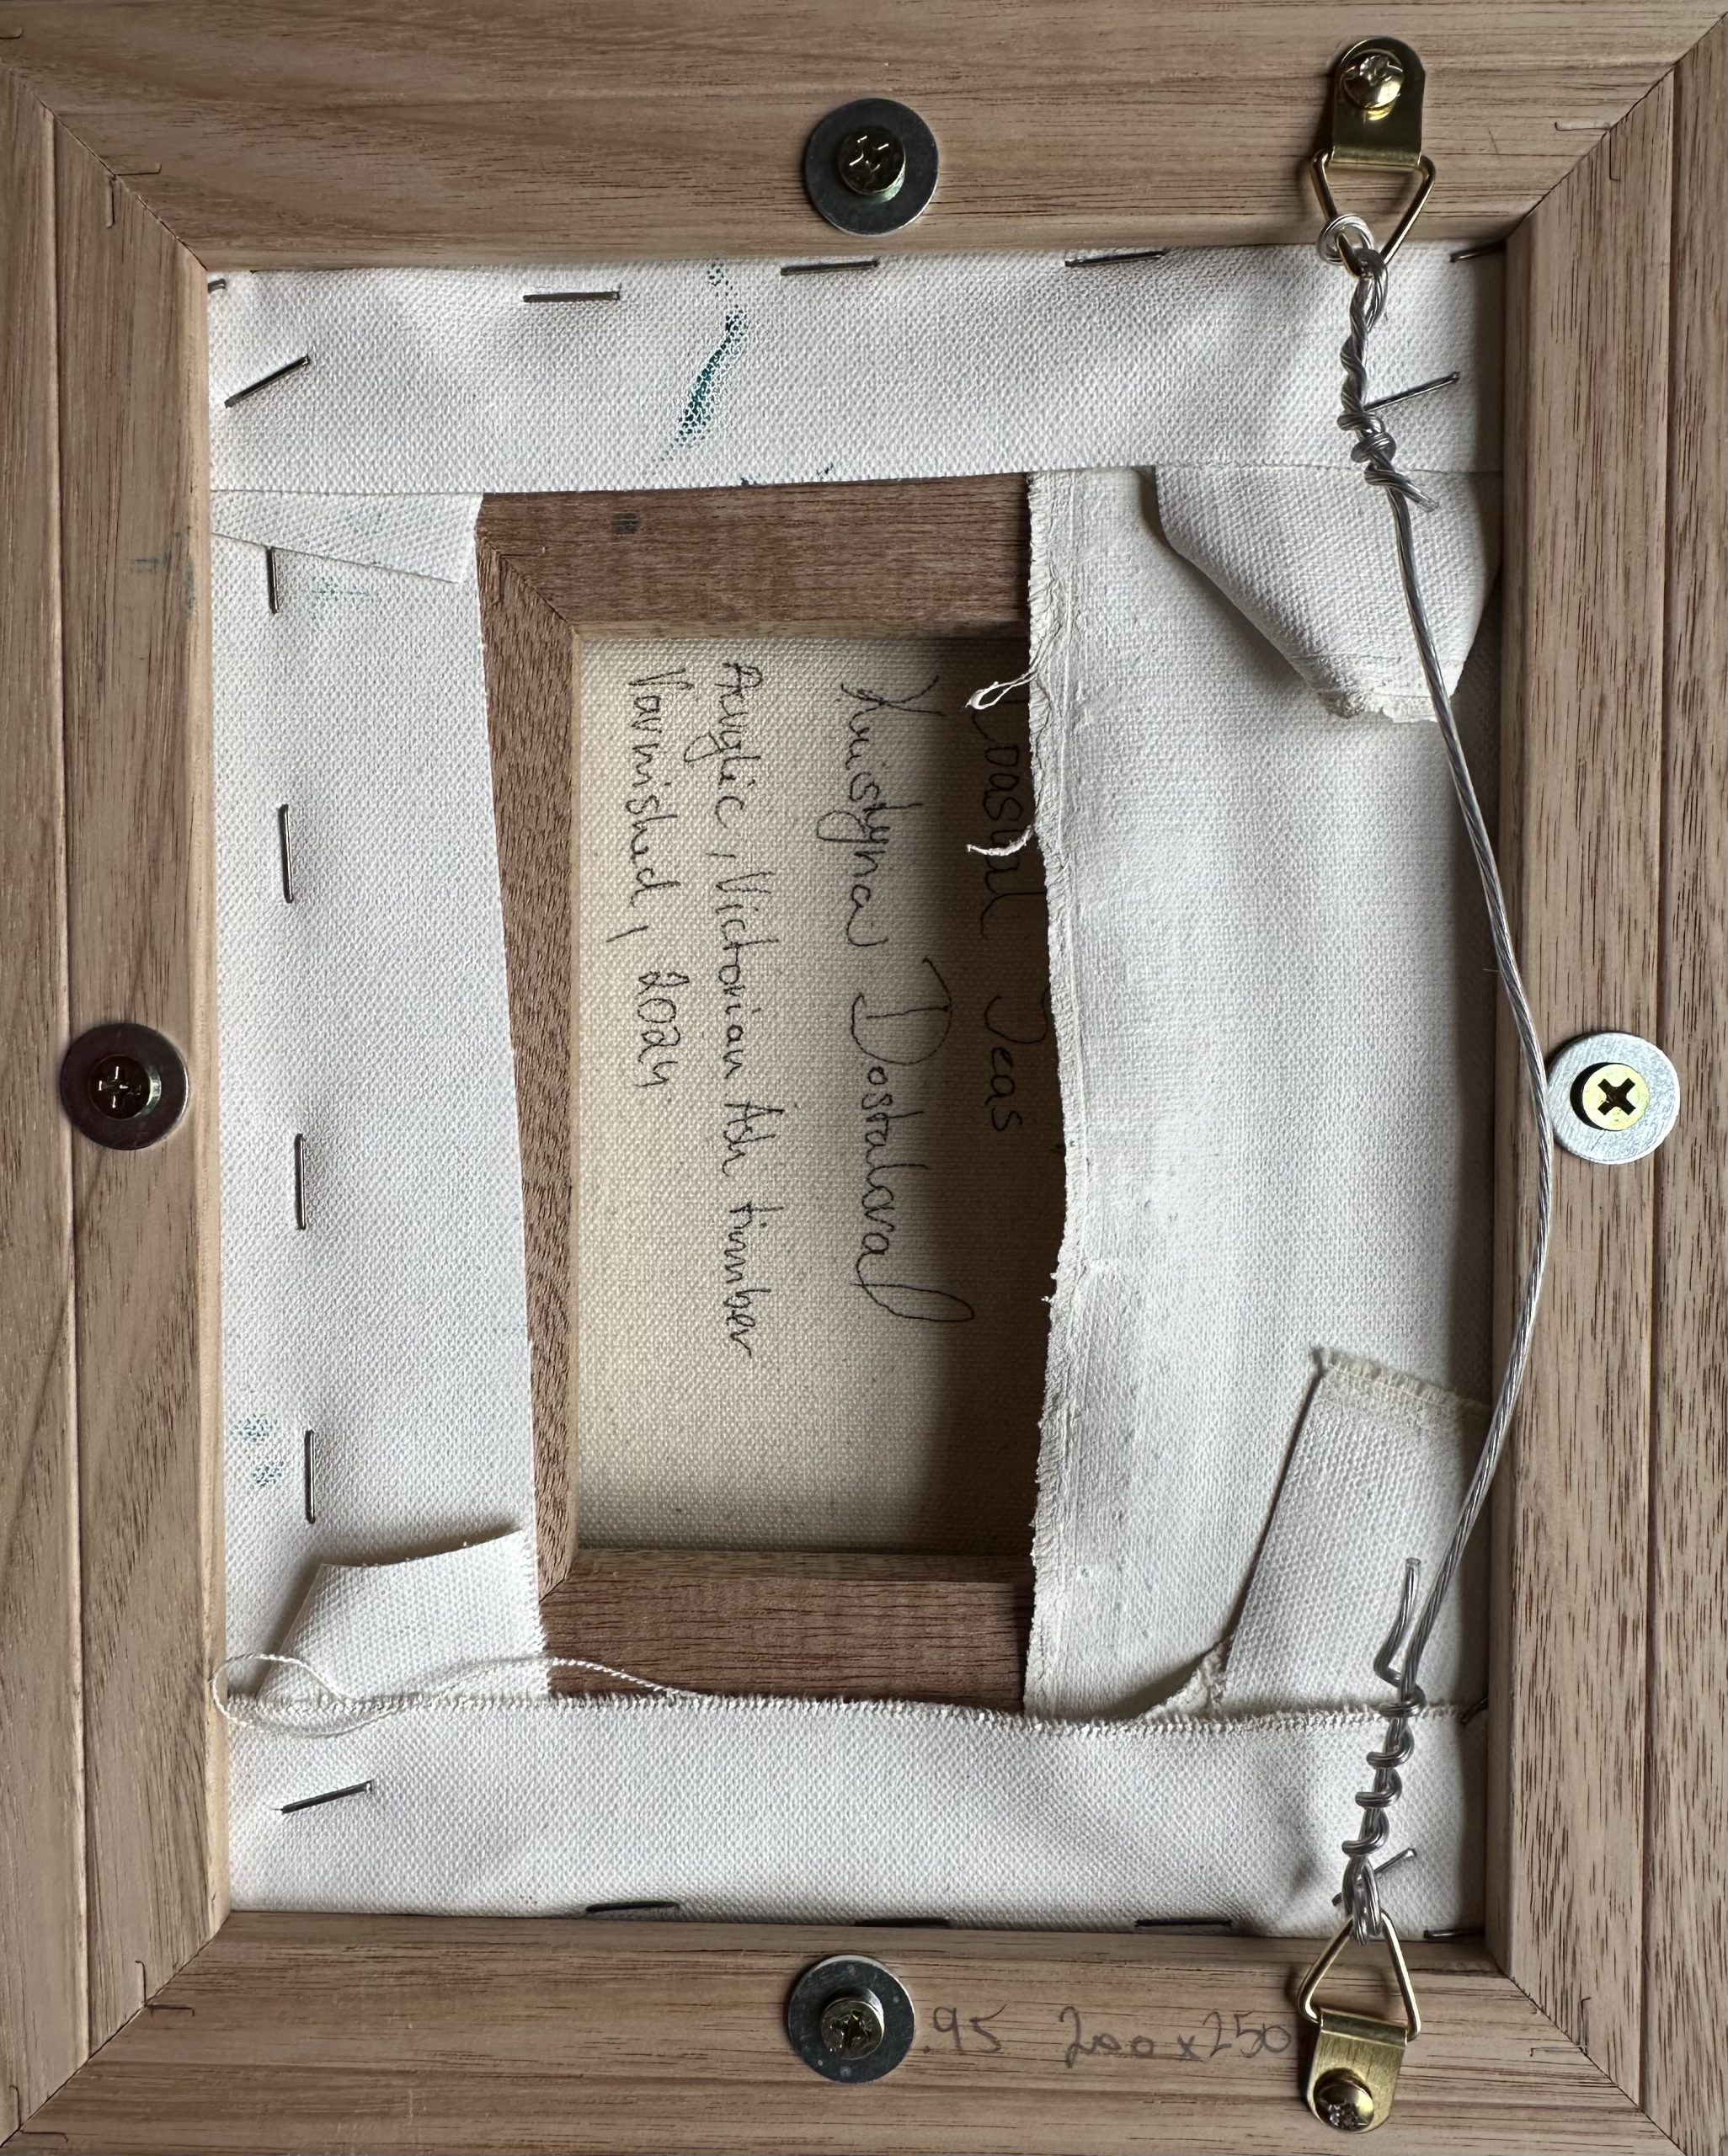 Coastal Seas
Kristyna Dostalova
Acrylic, Victorian Ash timber
Varnished, 2024
.95 200x250